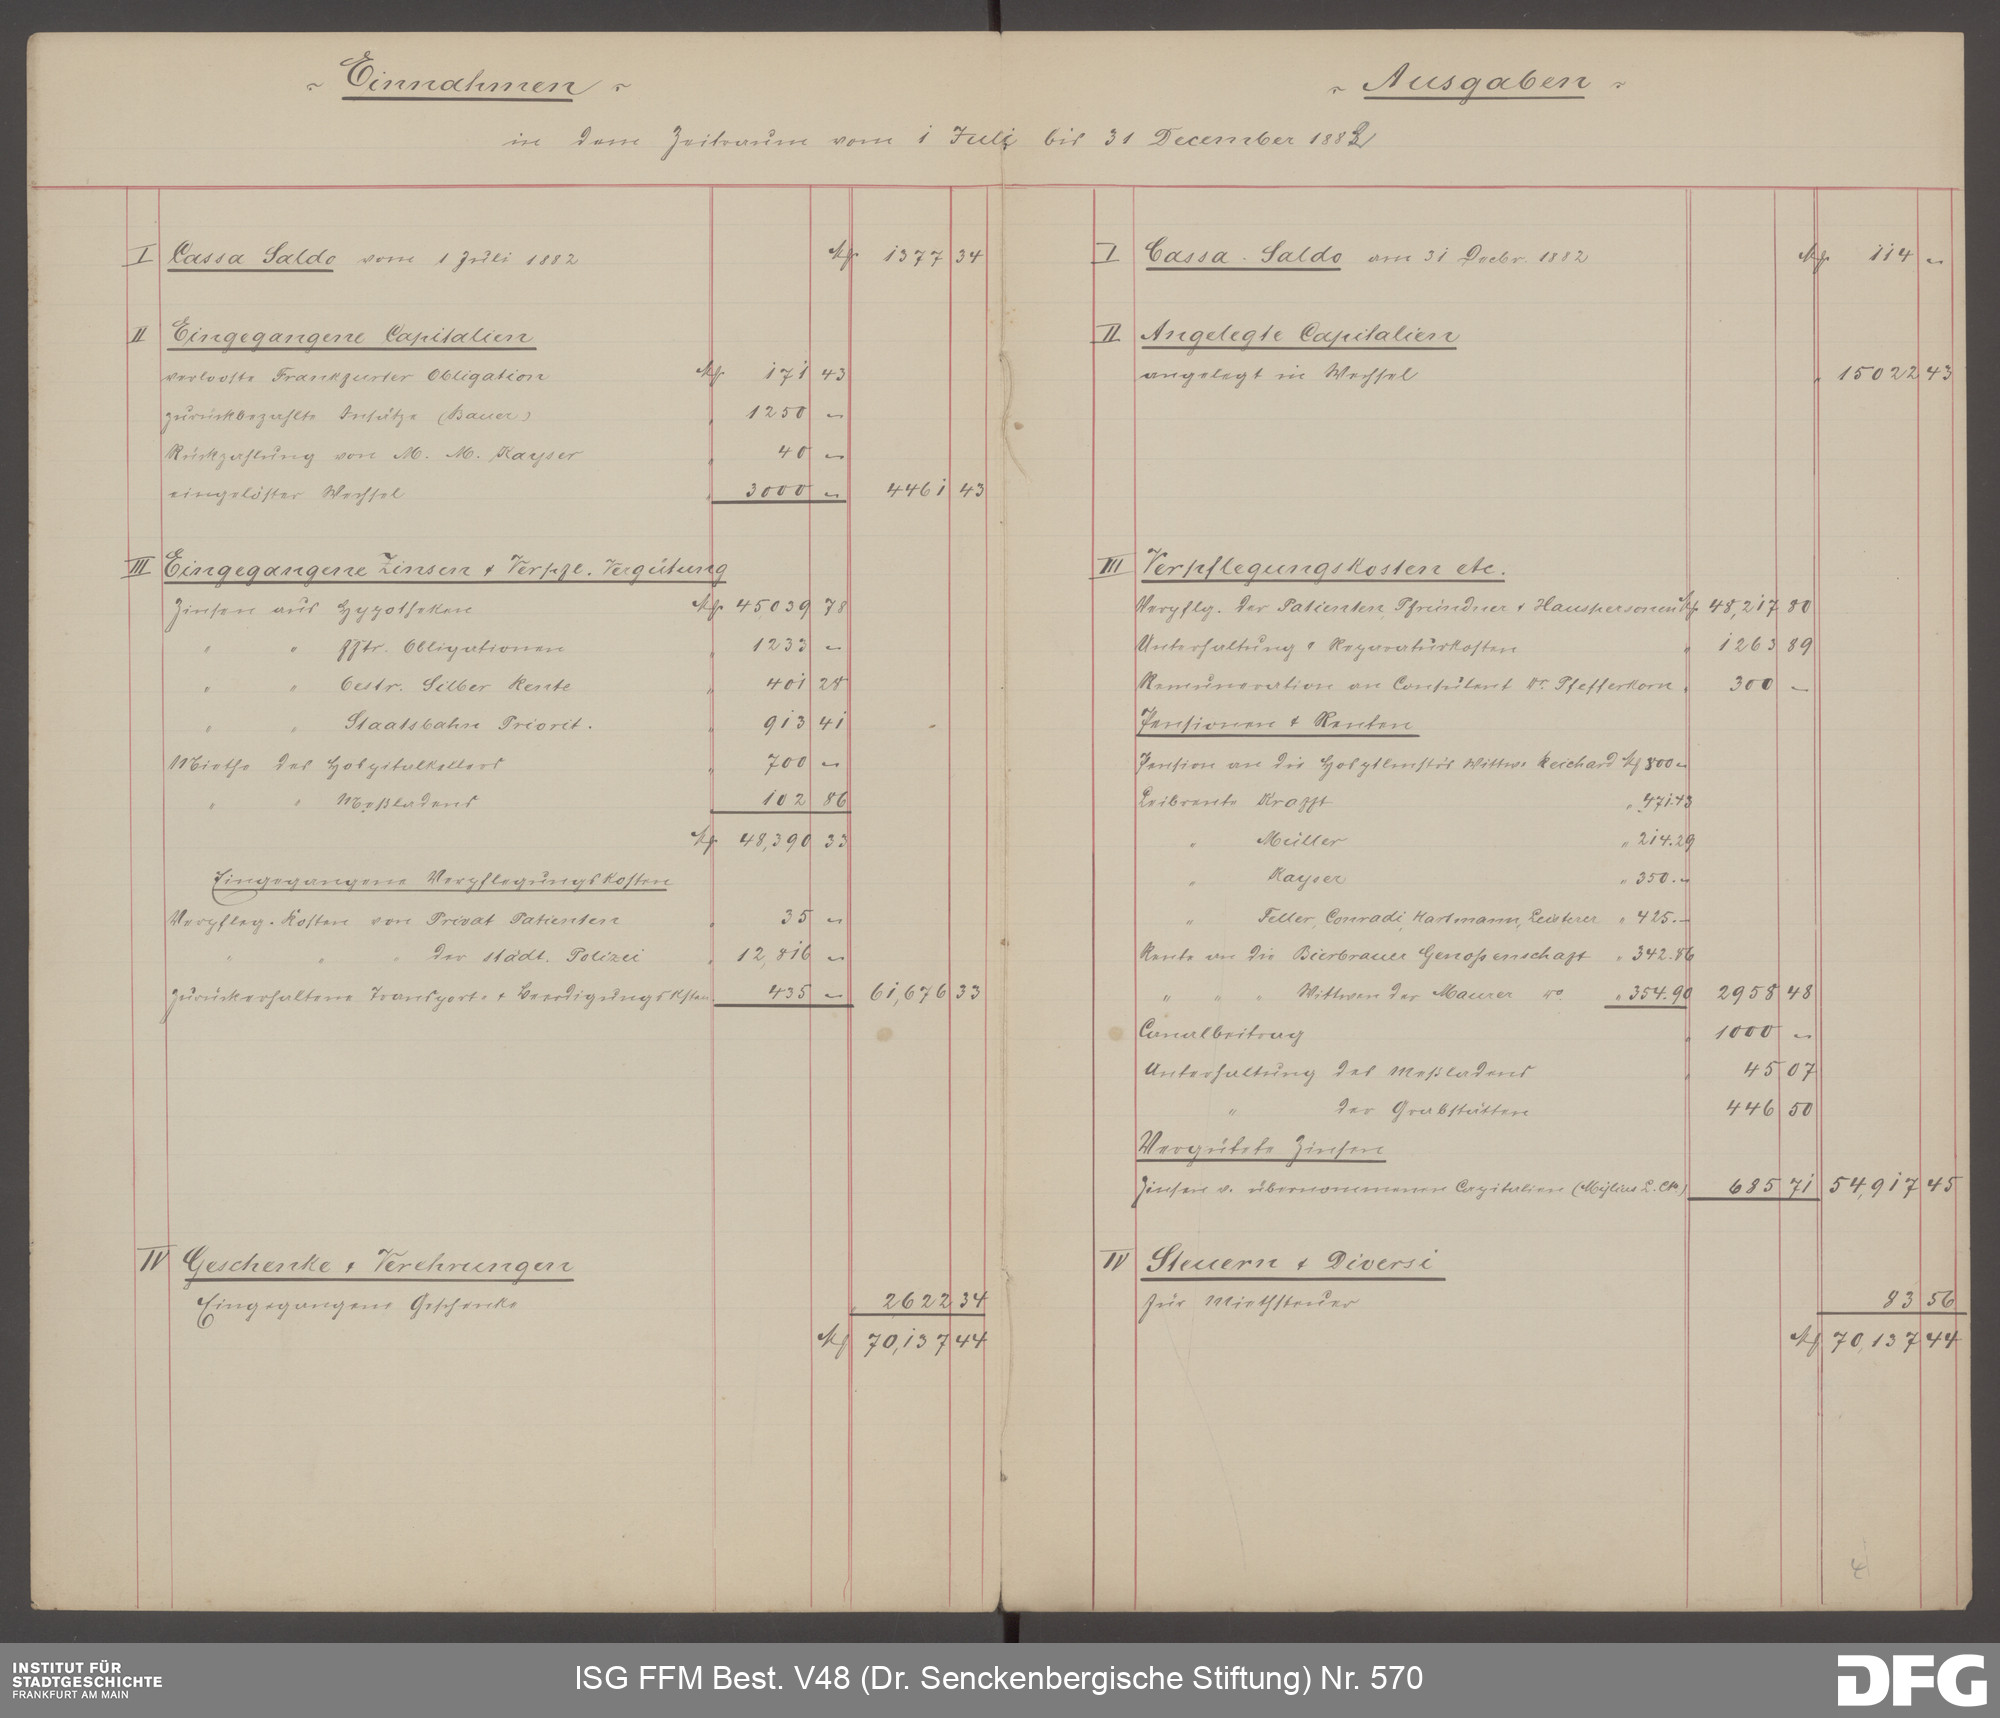 Einnahmen
Ausgaben
in dem Zeitraum vom 1 Juli bis 31 December 1882
I Cassa Saldo vom 1 Juli 1882 Mk 1377 34
II Eingegangene Capitalien
verlooste Frankfurter Obligation Mk 171 43
zurückbezahlte Insätze (Bauer) " 1250 –
Rückzahlung von M. M. Kayser " 40 –
eingelöster Wechsel " 3000 – 4461 43
III Eingegangene Zinsen & Verpfl. Vergütung
Zinsen aus Hypotheken Mk 45,039 78
" " Fftr. Obligationen " 1233 –
" " Oestr. Silber Rente " 401 28
" " Staatsbahn Priorit. " 913 41
Miethe des Hospitalkellers " 700 –
" " Meßladens 102 86
Mk 48,390 33
Eingegangene Verpflegungskosten
Verpfleg. Kosten von Privat Patienten " 35 –
" " " der städt. Polizei " 12,816 –
Zurückerhaltene Transport- & Beerdigungskosten 435 – 61,676 33
IV Geschenke & Verehrungen
Eingegangene Geschenke " 2622 34
Mk 70,137 44
I Cassa-Saldo am 31 Decbr. 1882 Mk 114 –
II Angelegte Capitalien
angelegt in Wechsel " 15022 43
III Verpflegungskosten etc.
Verpflg. der Patienten, Pfründner & Hauspersonen Mk 48,217 80
Unterhaltung & Reparaturkosten " 1263 89
Remuneration an Consulent Dr. Pfefferkorn " 300 –
Pensionen & Renten
Pension an die Hospitlmstrs Wittwe Reichard Mk 800 –
Leibrente Krafft " 471.43
" Müller " 214.29
" Kayser " 350.–
" Feller, Conradi, Hartmann, Leisterer " 425.–
Rente an die Bierbrauer Genossenschaft " 342.86
" " " Wittwen der Maurer do " 354.90 2958 48
Canalbeitrag " 1000 –
Unterhaltung des Meßladens " 45 07
" der Grabstätten 446 50
Vergütete Zinsen
Zinsen v. übernommenen Capitalien (Mylius L. Cto) 685 71 54,917 45
IV Steuern & Diversi
für Miethsteuer 83 56
Mk 70,137 44
4
INSTITUT FÜR
STADTGESCHICHTE
FRANKFURT AM MAIN
ISG FFM Best. V48 (Dr. Senckenbergische Stiftung) Nr. 570
DFG